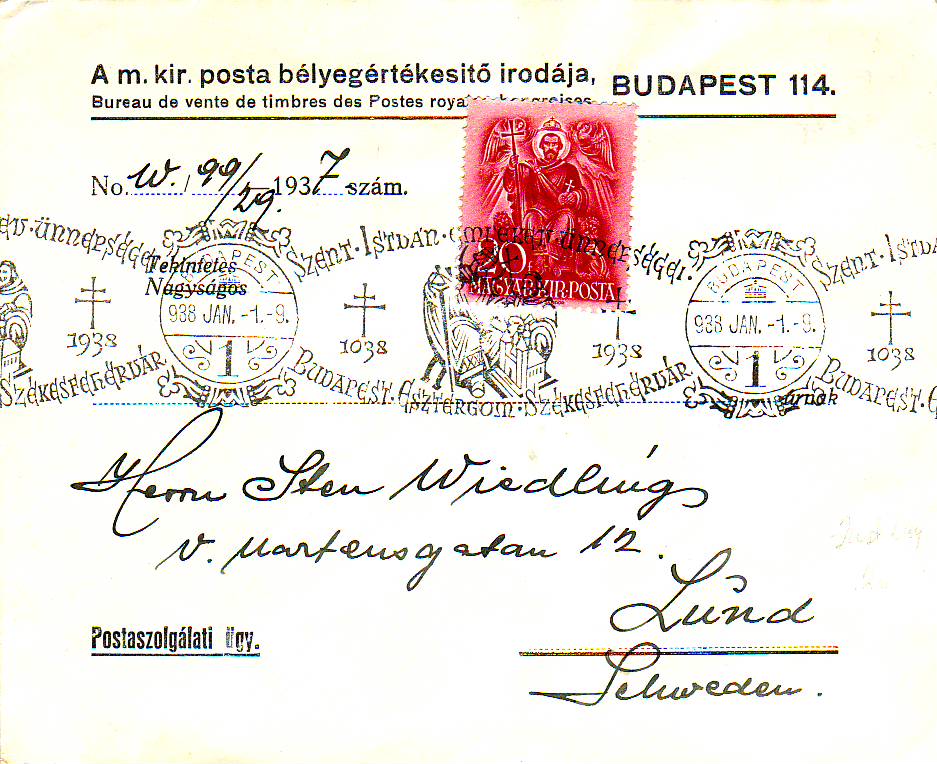 A m. kir. posta bélyegértékesitő irodája, BUDAPEST 114.
Bureau de vente de timbres des Postes royales hongroises
No. W. / 99/29. 1937 szám.
20
MAGYAR·KIR·POSTA
ÜNNEPSÉGEI · SZENT · ISTVÁN · EMLÉKÉV · ÜNNEPSÉGEI · SZENT · ISTVÁ
Tekintetes
Nagyságos
BUDAPEST
938 JAN. -1.-9.
1
1938
1038
1938
BUDAPEST
938 JAN. -1.-9.
1
1038
SZÉKESFEHÉRVÁR BUDAPEST · ESZTERGOM · SZÉKESFEHÉRVÁR BUDAPEST · E
úrnak
Herrn Sten Wiedling
v. Martensgatan 12.
Lund
Schweden.
Postaszolgálati ügy.